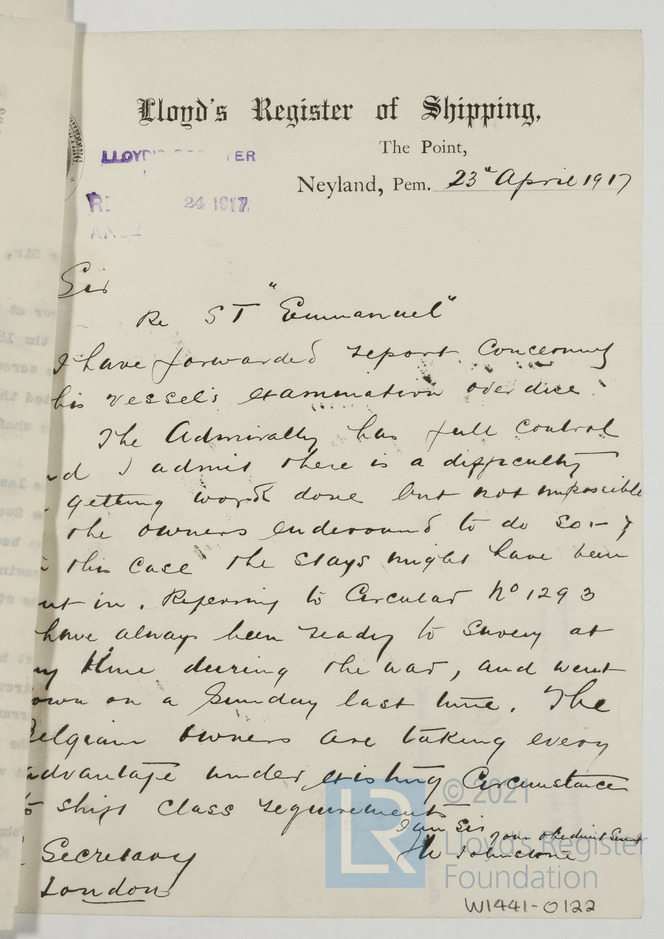 Lloyd's Register of Shipping,
The Point,
Neyland, Pem. 23d April 1917
LLOYD'S REGISTER
24 1917
Sir
Re ST "Emmanuel"
I have forwarded report concerning
his vessel's examination overdue.
The Admiralty has full control
d I admit there is a difficulty
getting work done but not impossible
the owners endeavourd to do so - &
this case the stays might have been
ut in. Referring to Circular No 1293
have always been ready to survey at
ny time during the war, and went
own on a Sunday last time. The
elgian owners are taking every
advantage under existing Circumstance
to shift class requirements
I am Sir your obedient Servt
Johnstone
Secretary
London
© 2021
LR
Lloyd's Register
Foundation
W1441-0122